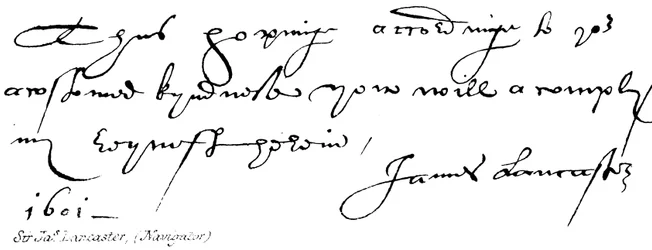 Thus hopinge accordinge to yor
acostomed kyndnesse yow will acomply
my reqnest herein /
James Lancaster
1601
Sir Jas. Lancaster, (Navigator)